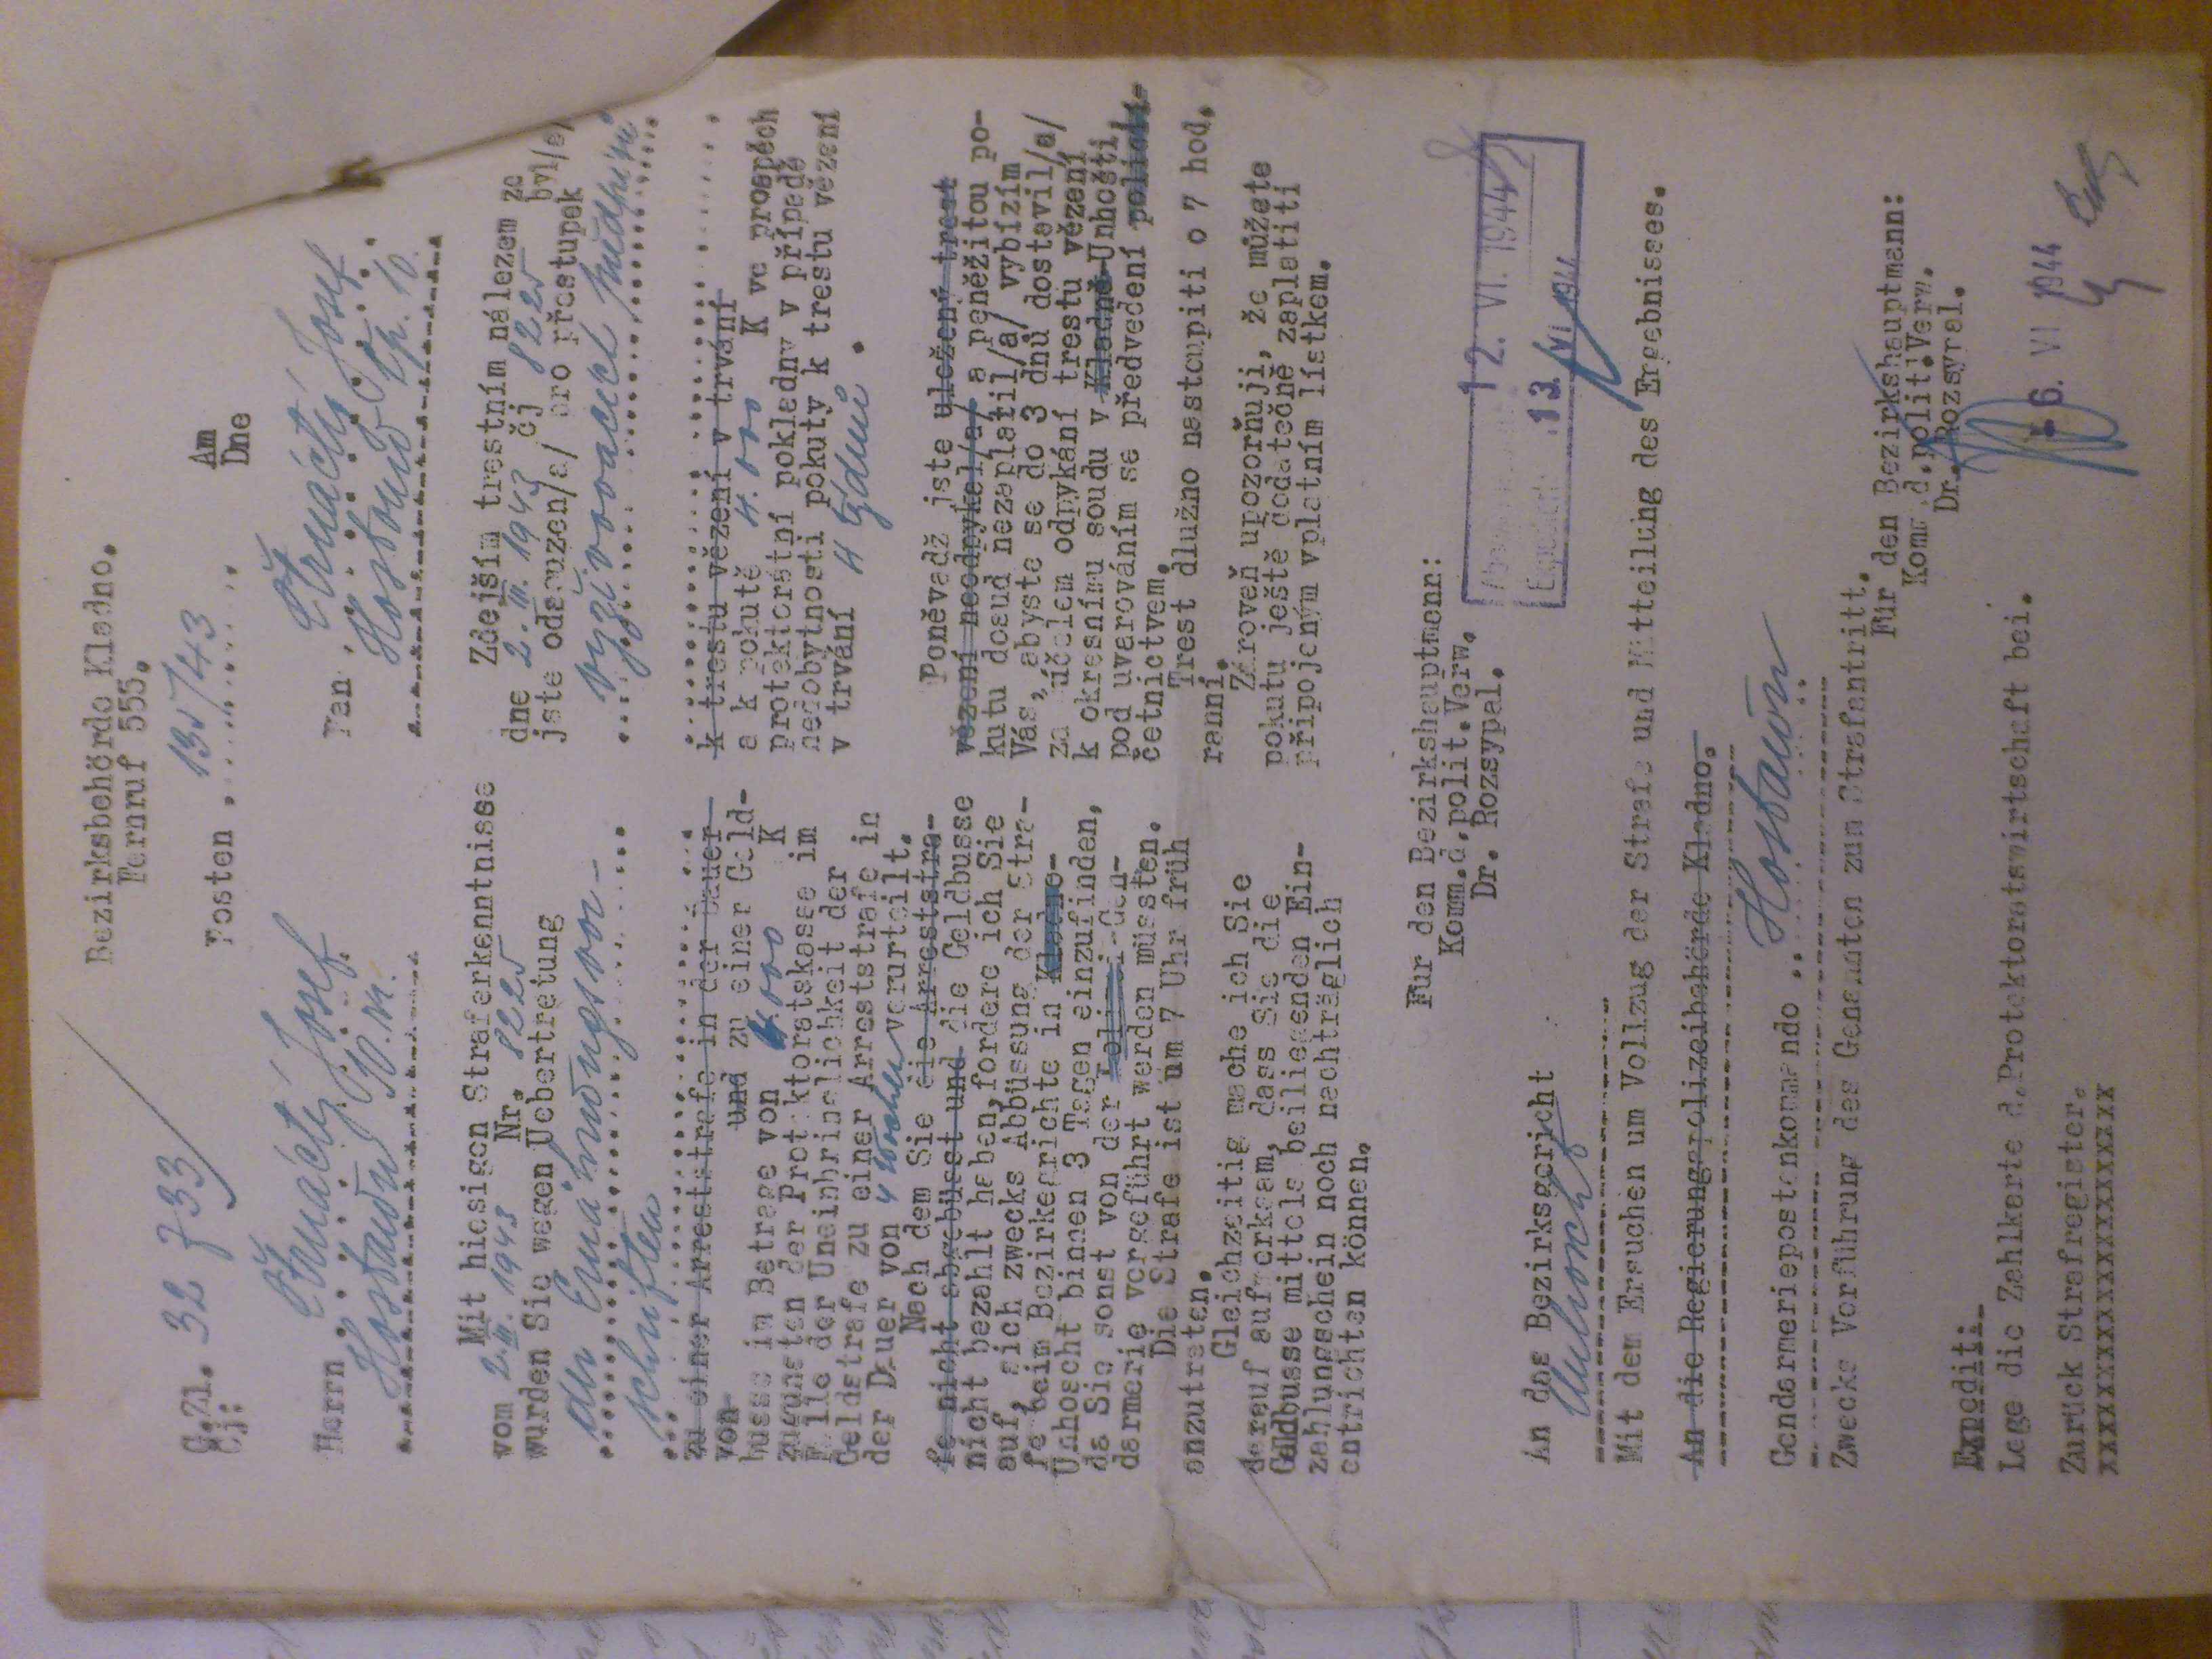 Bezirksbehörde Kladno.
Fernruf 555.
G.Zl. 32 733
Čj:
Posten 135/43
Am
Dne
Herrn Čtrnáctý Josef
Hostaun 10. N.
Pan Čtrnáctý Josef
Hostouň čp. 10.
Mit hiesigen Straferkenntnisse
vom 2. III. 1943 Nr. 8225
wurden Sie wegen Uebertretung
der Ernährungsvor-
schriften
zu einer Arreststrafe in der Dauer
von und zu einer Geld-
busse im Betrage von 4.000 K
zugunsten der Protektoratskasse im
Falle der Uneinbringlichkeit der
Geldstrafe zu einer Arreststrafe in
der Dauer von 4 Wochen verurteilt.
Nach dem Sie die Arreststra-
fe nicht abgebüsst und die Geldbusse
nicht bezahlt haben, fordere ich Sie
auf, sich zwecks Abbüssung der Stra-
fe beim Bezirksgrichte in Kladno-
Unhoscht binnen 3 Tagen einzufinden,
da Sie sonst von der Polizei-Gen-
darmerie vorgeführt werden müssten.
Die Strafe ist um 7 Uhr früh
anzutreten.
Gleichzeitig mache ich Sie
darauf aufmerksam, dass Sie die
Geldbusse mittels beiliegenden Ein-
zahlungschein noch nachträglich
entrichten können.
Zdejším trestním nálezem ze
dne 2. III. 1943 čj 8225 byl/a/
jste odsouzen/a/ pro přestupek
vyživovacích předpisů
k trestu vězení v trvání
a k pokutě 4.000 K ve prospěch
protektorátní pokladny v případě
nedobytnosti pokuty k trestu vězení
v trvání 4 týdnů .
Poněvadž jste uložený trest
vězení neodpykal/a/ a peněžitou po-
kutu dosud nezaplatil/a/ vybízím
Vás, abyste se do 3 dnů dostavil/a/
za účelem odpykání trestu vězení
k okresnímu soudu v Kladně-Unhošti,
pod uvarováním se předvedení policií-
četnictvem.
Trest dlužno nastoupiti o 7 hod.
ranní.
Zároveň upozorňuji, že můžete
pokutu ještě dodatečně zaplatiti
připojeným vplatním lístkem.
Für den Bezirkshauptmann:
Komm.d.polit.Verw.
Dr. Rozsypal.
12. VI. 1944
Expediert: 13. VI. 1944
An das Bezirksgericht
Unhoscht
Mit dem Ersuchen um Vollzug der Strafe und Mitteilung des Ergebnisses.
An die Regierungspolizeibehörde Kladno.
Gendarmeriepostenkommando .. Hostaun
Zwecks Vorführung des Genannten zum Strafantritt.
Für den Bezirkshauptmann:
Komm.d.polit.Verw.
Dr. Rozsypal.
Expedit:
Lege die Zahlkarte d.Protektoratswirtschaft bei.
- 6. VI 1944
Zurück Strafregister.
xxxxxxxxxxxxxxxxxxxxx